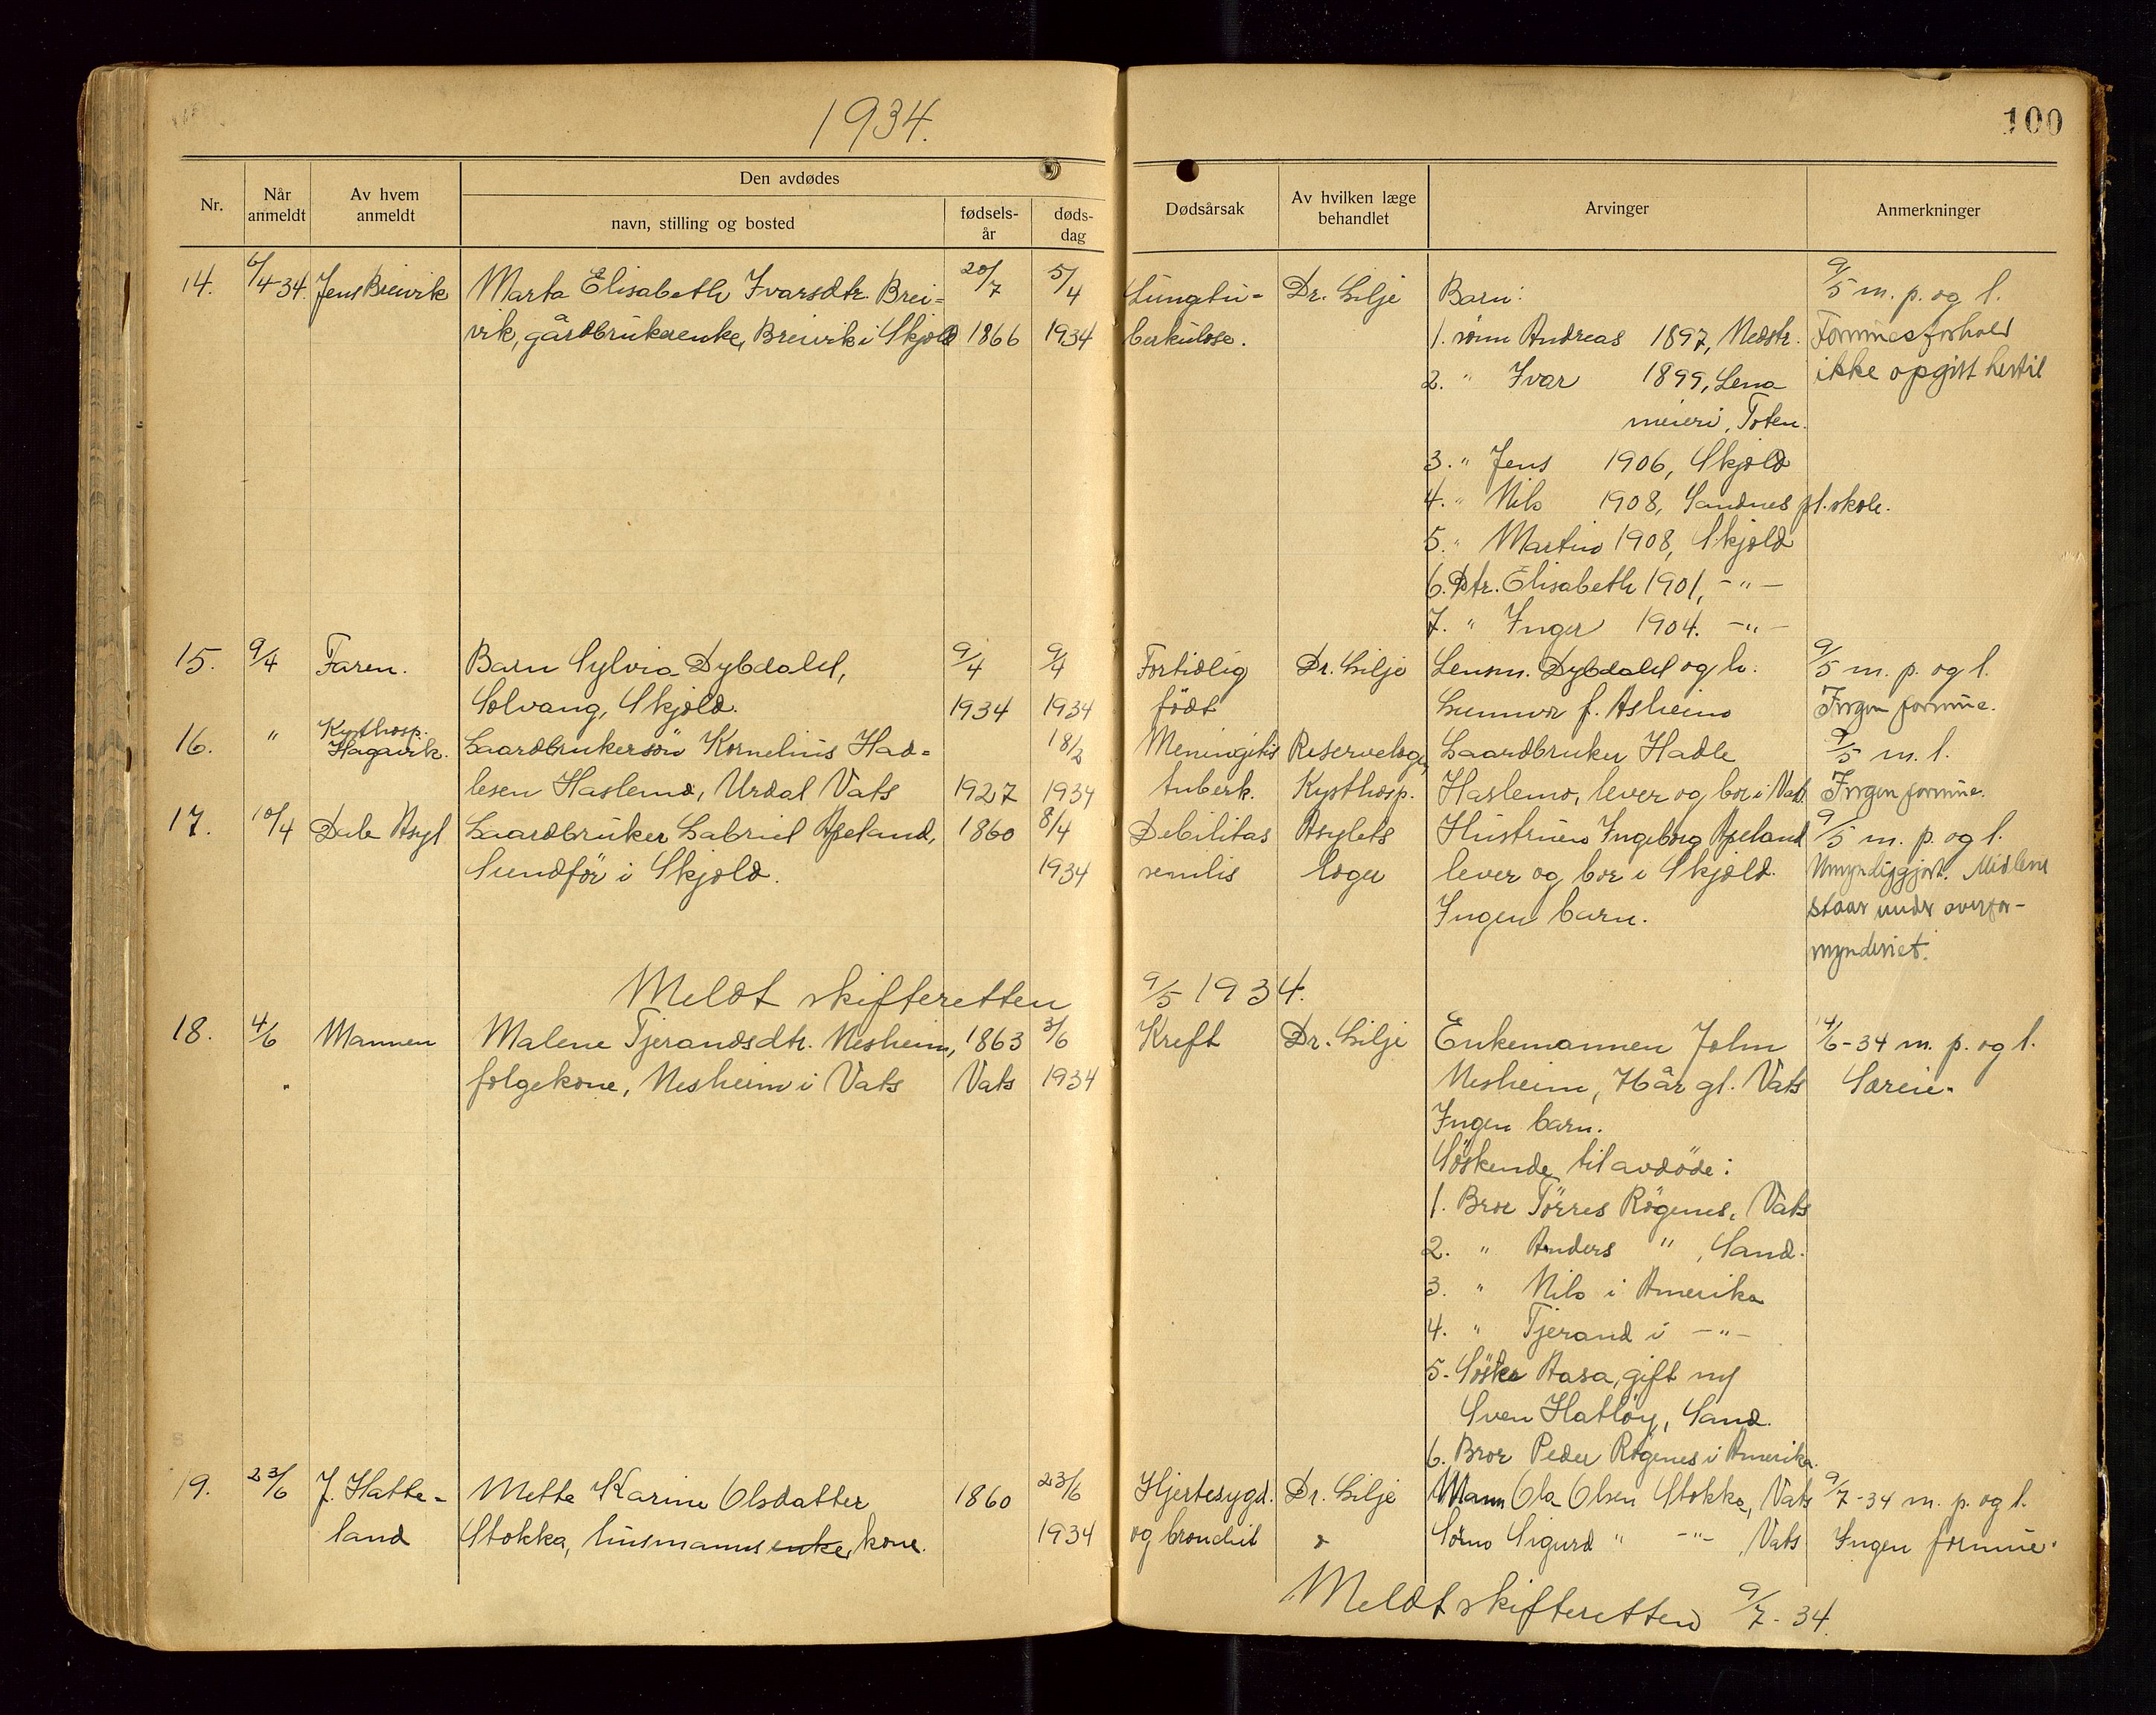 1934.
100
Nr.
Når anmeldt
Av hvem anmeldt
Den avdødes
navn, stilling og bosted
fødsels-år
døds-dag
Dødsårsak
Av hvilken læge behandlet
Arvinger
Anmerkninger
14. 6/4-34. Jens Breivik Marta Elisabeth Ivarsdtr. Brei= 20/7 5/4 Lungetu= Dr. Lilje Barn: 9/5 m. p. og l.
vik, gårdbrukerenke, Breivik i Skjold 1866 1934 berkulose. 1. sönn Andreas 1897, Nedstr. Formuesforhold
2. " Ivar 1899, Lena ikke opgitt hertil
meieri, Toten.
3. " Jens 1906, Skjold
4. " Nils 1908, Sandnes pl. skole.
5. " Martin 1908, Skjold
6. Dtr. Elisabeth 1901, -"-
7. " Inger 1904. -"-
15. 9/4 Faren. Barn Sylvia Dybdahl, 9/4 9/4 Fortidlig Dr. Lilje Lensm. Dybdahl og h. 9/5 m. p. og l.
Solvang, Skjold. 1934 1934 födt Gunnvor f. Asheim Ingen formue.
16. " Kysthosp. Hagavik. Gaardbrukersön Kornelius Had= 18/2 Meningitis Reservelæge, Gaardbruker Hadle 9/5 m. l.
lesen Haslemo, Urdal Vats 1927 1934 tuberk. Kysthosp. Haslemo, lever og bor i Vats. Ingen formue.
17. 10/4 Dale Asyl Gaardbruker Gabriel Apeland, 1860 8/4 Debilitas Asylets Hustruen Ingeborg Apeland 9/5 m. p. og l.
Sundför i Skjold. 1934 senilis læger lever og bor i Skjold. Umyndiggjort. Midlene
Ingen barn. staar under overfor-
mynderiet.
Meldt skifteretten 9/5 1934.
18. 4/6 Mannen Malene Tjerandsdtr. Nesheim, 1863 3/6 Kreft Dr. Lilje Enkemannen John 14/6-34 m. p. og l.
folgekone, Nesheim i Vats Vats 1934 Nesheim, 76 år gl. Vats Særeie.
Ingen barn.
Söskende til avdöde:
1. Bror Törres Rögenes, Vats
2. " Anders " , Sand.
3. " Nils i Amerika
4. " Tjerand i -"-
5. Söster Aasa, gift m/
Sven Hatlöy, Sand.
6. Bror Peder Rögenes i Amerika.
19. 23/6 J. Hatte- Mette Karine Olsdatter 1860 23/6 Hjertesygd. Dr. Lilje Mann Ola Olsen Stokka, Vats 9/7-34 m. p. og l.
land Stokka, husmanns enke, kone. 1934 og bronchit Sönn Sigurd " -"- , Vats Ingen formue.
Meldt skifteretten 9/7-34.